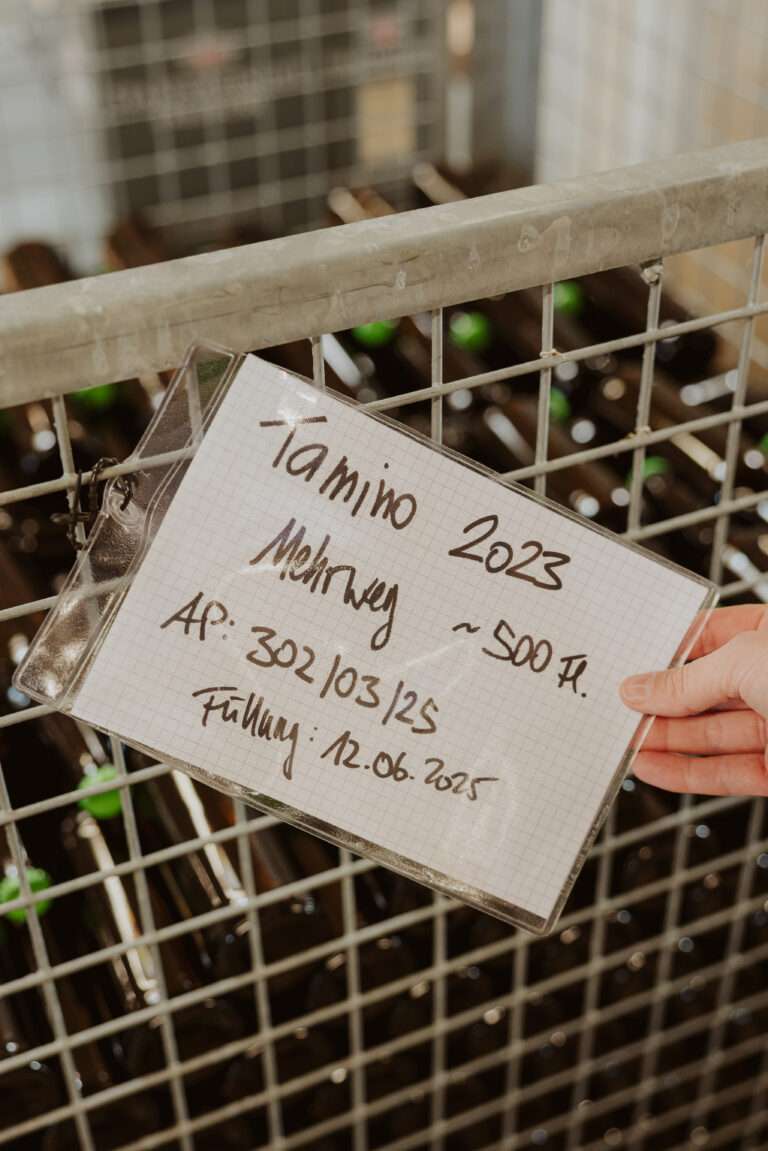 Tamino 2023
Mehrweg ~500 Fl.
AP: 302/03/25
Füllung: 12.06.2025